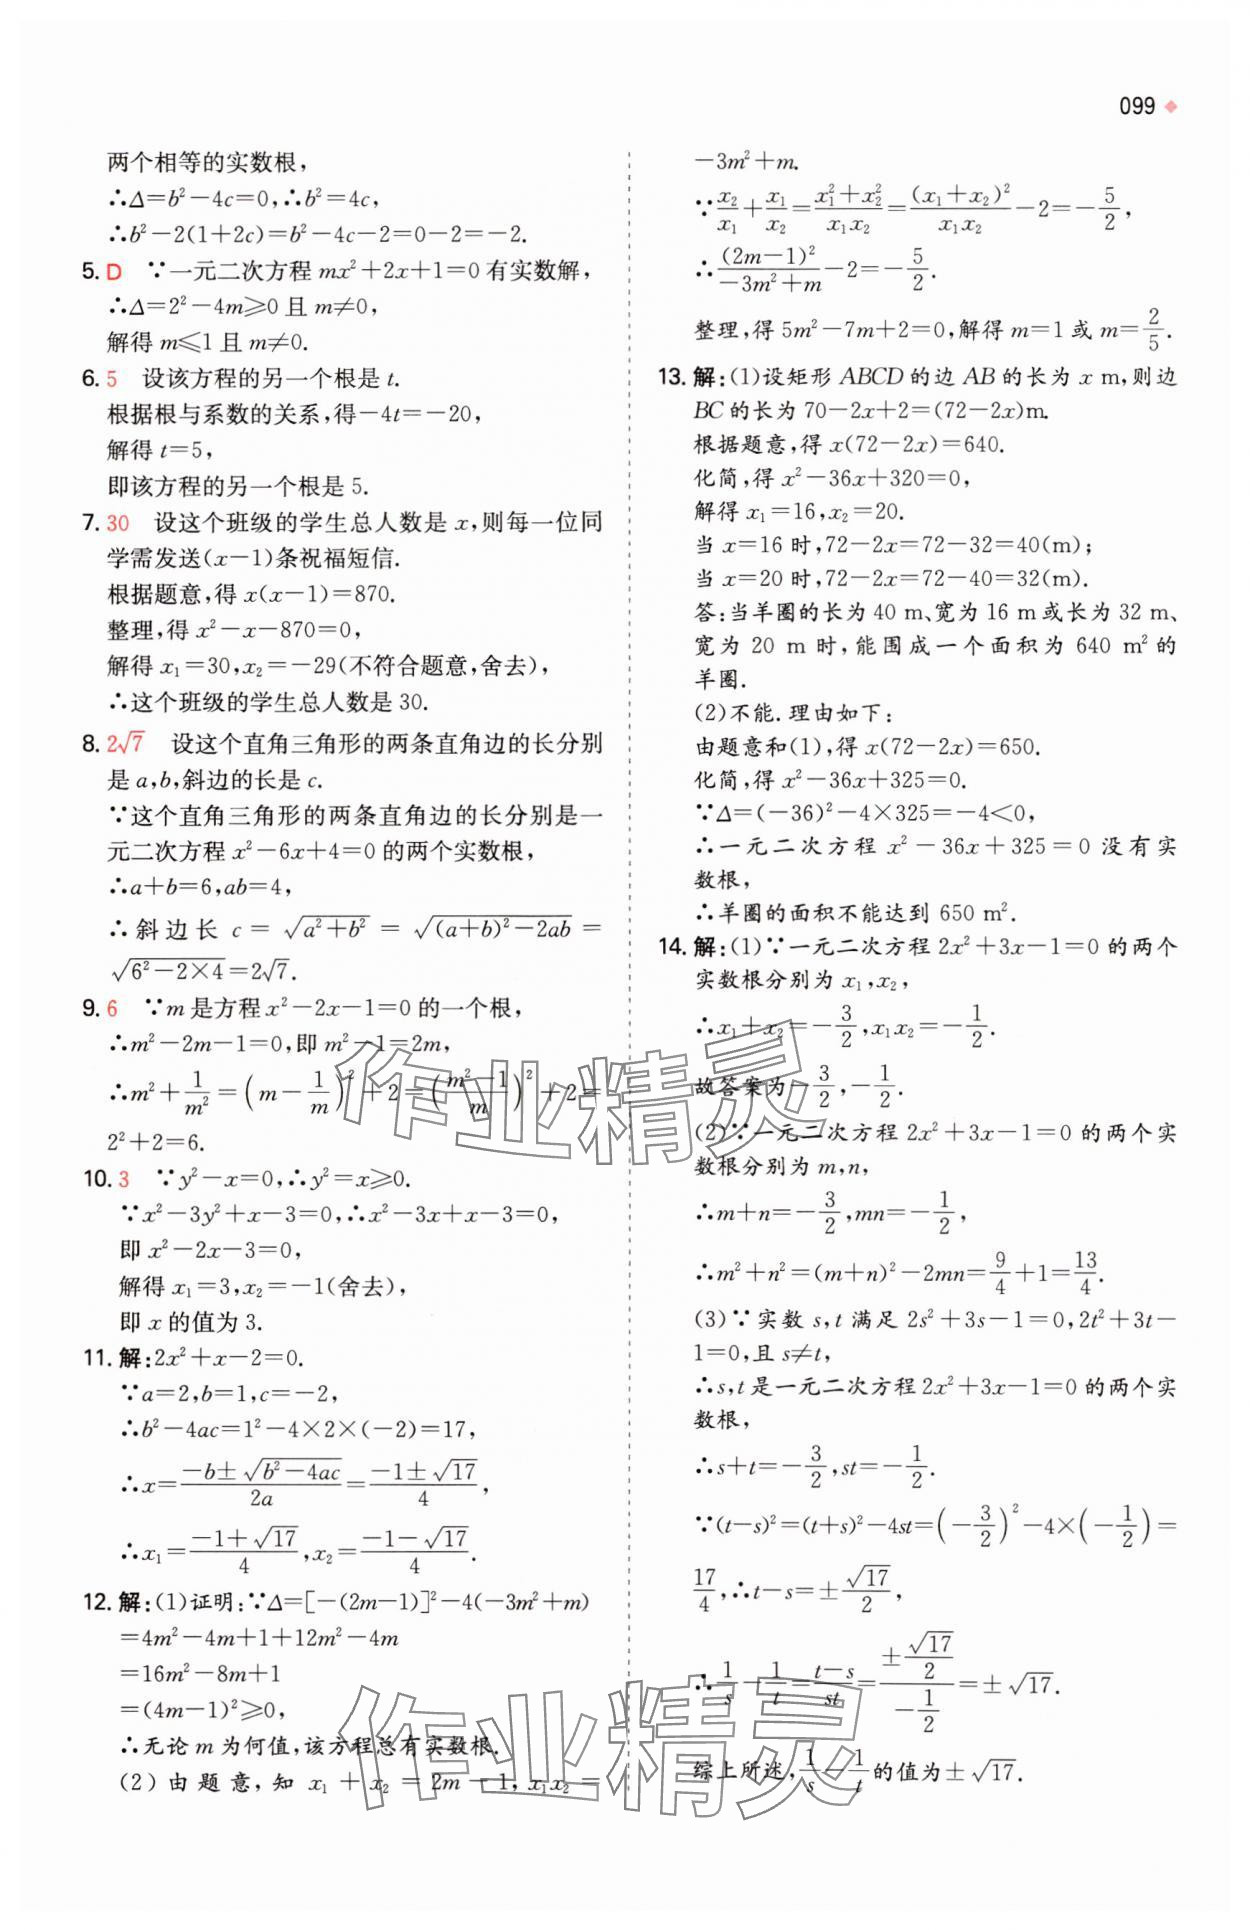 099
两个相等的实数根，
∴Δ=b²-4c=0，∴b²=4c，
∴b²-2(1+2c)=b²-4c-2=0-2=-2.
5. D ∵一元二次方程 mx²+2x+1=0 有实数解，
∴Δ=2²-4m⩾0 且 m≠0，
解得 m⩽1 且 m≠0.
6. 5 设该方程的另一个根是 t.
根据根与系数的关系，得-4t=-20，
解得 t=5，
即该方程的另一个根是 5.
7. 30 设这个班级的学生总人数是 x，则每一位同
学需发送(x-1)条祝福短信.
根据题意，得 x(x-1)=870.
整理，得 x²-x-870=0，
解得 x₁=30，x₂=-29(不符合题意，舍去)，
∴这个班级的学生总人数是 30.
8. 2√7 设这个直角三角形的两条直角边的长分别
是 a，b，斜边的长是 c.
∵这个直角三角形的两条直角边的长分别是一
元二次方程 x²-6x+4=0 的两个实数根，
∴a+b=6，ab=4，
∴斜边长 c=√(a²+b²)=√((a+b)²-2ab)=
√(6²-2×4)=2√7.
9. 6 ∵m 是方程 x²-2x-1=0 的一个根，
∴m²-2m-1=0，即 m²-1=2m，
∴m²+1/m²=(m-1/m)²+2=((m²-1)/m)²+2=
2²+2=6.
10. 3 ∵y²-x=0，∴y²=x⩾0.
∵x²-3y²+x-3=0，∴x²-3x+x-3=0，
即 x²-2x-3=0，
解得 x₁=3，x₂=-1(舍去)，
即 x 的值为 3.
11. 解：2x²+x-2=0.
∵a=2，b=1，c=-2，
∴b²-4ac=1²-4×2×(-2)=17，
∴x=(-b±√(b²-4ac))/2a=(-1±√17)/4，
∴x₁=(-1+√17)/4，x₂=(-1-√17)/4.
12. 解：(1)证明：∵Δ=[-(2m-1)]²-4(-3m²+m)
=4m²-4m+1+12m²-4m
=16m²-8m+1
=(4m-1)²⩾0，
∴无论 m 为何值，该方程总有实数根.
(2)由题意，知 x₁+x₂=2m-1，x₁x₂=
-3m²+m.
∵x₂/x₁+x₁/x₂=(x₁²+x₂²)/x₁x₂=(x₁+x₂)²/x₁x₂-2=-5/2，
∴(2m-1)²/(-3m²+m)-2=-5/2.
整理，得 5m²-7m+2=0，解得 m=1 或 m=2/5.
13. 解：(1)设矩形 ABCD 的边 AB 的长为 x m，则边
BC 的长为 70-2x+2=(72-2x)m.
根据题意，得 x(72-2x)=640.
化简，得 x²-36x+320=0，
解得 x₁=16，x₂=20.
当 x=16 时，72-2x=72-32=40(m)；
当 x=20 时，72-2x=72-40=32(m).
答：当羊圈的长为 40 m、宽为 16 m 或长为 32 m、
宽为 20 m 时，能围成一个面积为 640 m² 的
羊圈.
(2)不能.理由如下：
由题意和(1)，得 x(72-2x)=650.
化简，得 x²-36x+325=0.
∵Δ=(-36)²-4×325=-4<0，
∴一元二次方程 x²-36x+325=0 没有实
数根，
∴羊圈的面积不能达到 650 m².
14. 解：(1)∵一元二次方程 2x²+3x-1=0 的两个
实数根分别为 x₁，x₂，
∴x₁+x₂=-3/2，x₁x₂=-1/2.
故答案为-3/2，-1/2.
(2)∵一元二次方程 2x²+3x-1=0 的两个实
数根分别为 m，n，
∴m+n=-3/2，mn=-1/2，
∴m²+n²=(m+n)²-2mn=9/4+1=13/4.
(3)∵实数 s，t 满足 2s²+3s-1=0，2t²+3t-
1=0，且 s≠t，
∴s，t 是一元二次方程 2x²+3x-1=0 的两个实
数根，
∴s+t=-3/2，st=-1/2.
∵(t-s)²=(t+s)²-4st=(-3/2)²-4×(-1/2)=
17/4，∴t-s=±√17/2，
∴1/s-1/t=(t-s)/st=(±√17/2)/(-1/2)=±√17.
综上所述，1/s-1/t 的值为±√17.
作业精灵
作业精灵